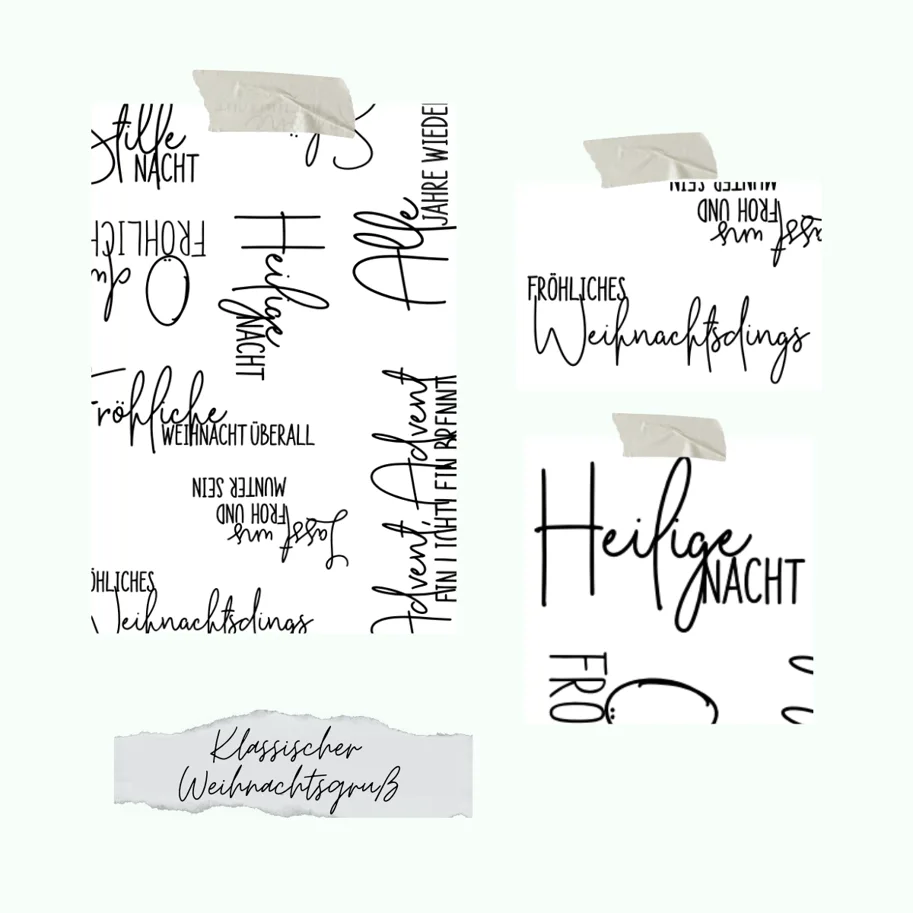 Stille
NACHT
FRÖHLICH
O du
Heilige
NACHT
Alle
JAHRE WIEDER
Fröhliche
WEIHNACHT ÜBERALL
Lasst uns
FROH UND
MUNTER SEIN
Advent, Advent
EIN LICHTLEIN BRENNT
ÖHLICHES
Weihnachtsdings
Lasst uns
FROH UND
MUNTER SEIN
FRÖHLICHES
Weihnachtsdings
Heilige
NACHT
FRÖ
Klassischer
Weihnachtsgruß